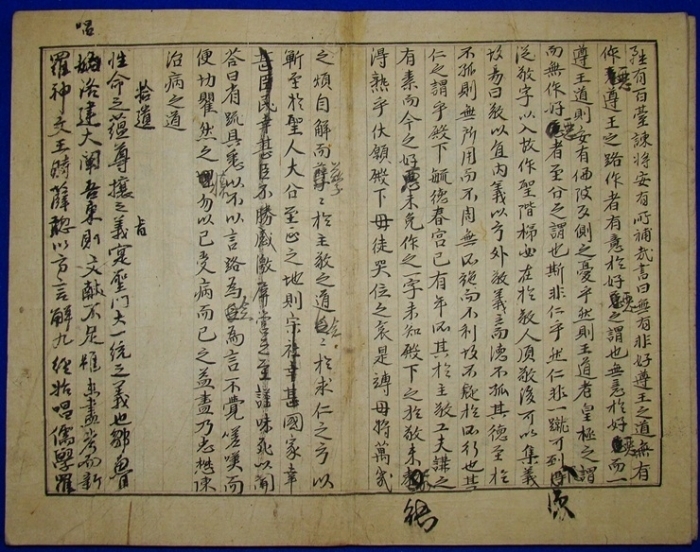 陛有百臺諫將安有所補哉書曰無有作好遵王之道無有
作惡遵王之路作者有意於好惡之謂也無意於好惡而一
遵王道則安有偏陂反側之憂乎然則王道者皇極之謂
而無作好惡者至公之謂也斯非仁乎然仁非一蹴可到
從敬字以入故作聖階梯亶在於敬人須敬後可以集義
故易曰敬以直內義以方外敬義立而德不孤其德至於
不孤則無所用而不周無所施而不利故不疑於所行也其
仁之謂乎殿下毓德春宮已有年所其於主敬工夫講之
有素而今之好惡未免作之一字未知殿下之於敬未
得熟乎伏願殿下毋徒哭位之哀是
之煩自解而孳孳於主敬之道於求仁之方以
漸至於聖人大公至正之地則宗社幸甚國家幸
甚臣民幸甚臣不勝感激屏營之至謹昧死以聞
答曰有疏具悉以不以言路為為言不覺嗟嘆而
便切瞿然之勿以己受病而已之益盡乃忠懋陳
治病之道
拾遺
性命之蘊尊攘之義寔聖門大一統之義也鄒魯
洛建大闡吾東則文獻不足雖未盡考而新
羅神文王時薛聰以方言解九經始唱儒學羅